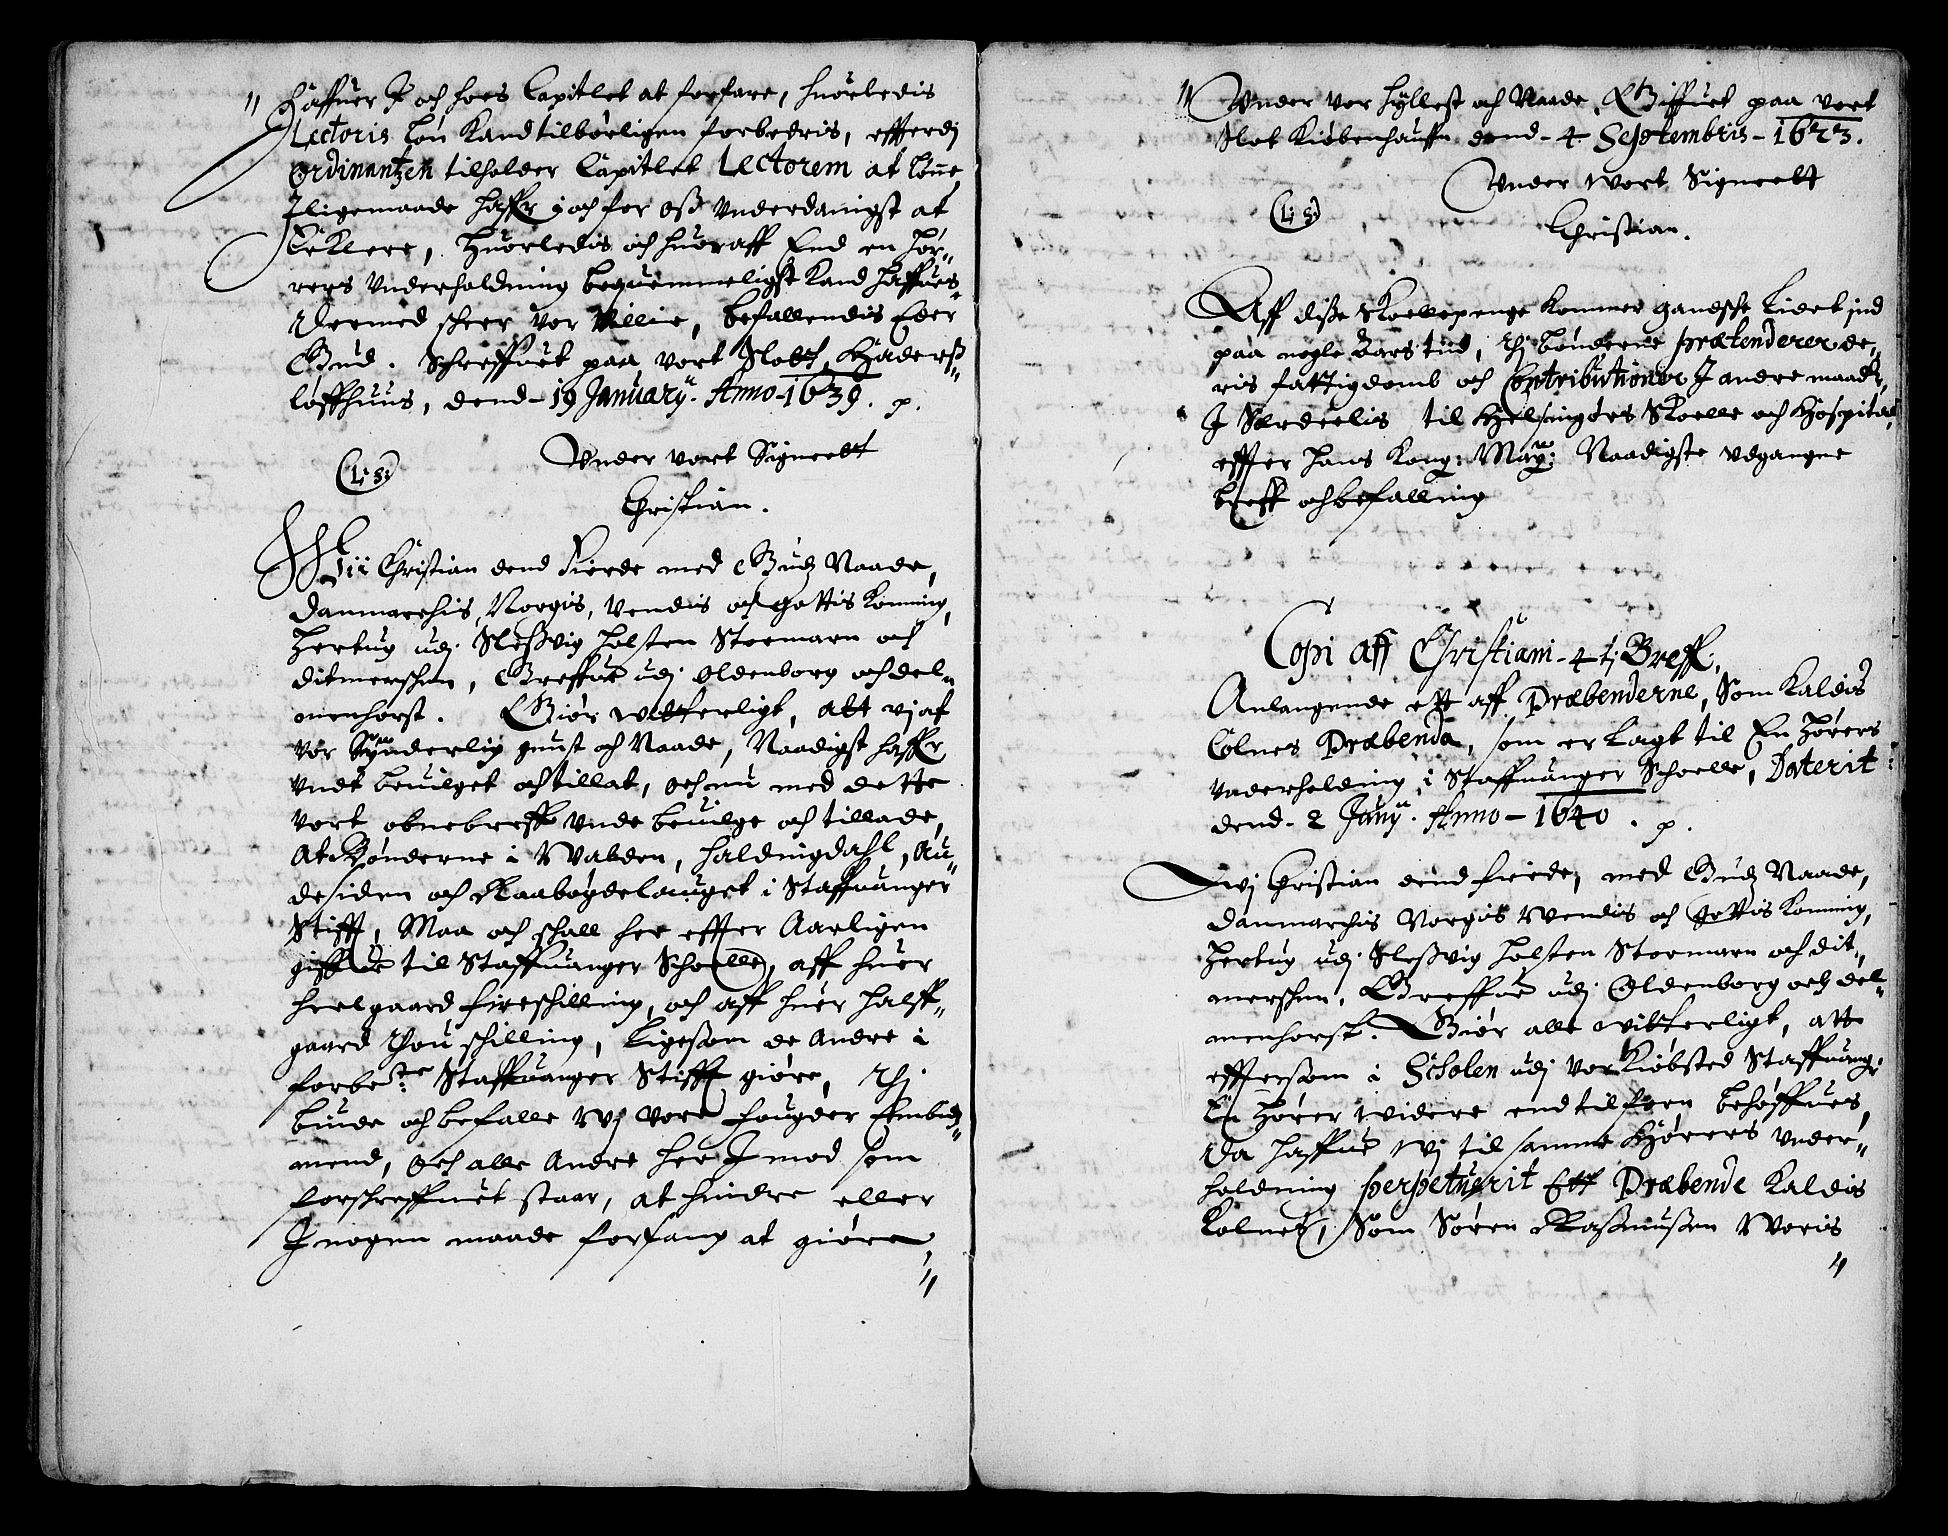 Haffuer I och hoes Capitlet at forfare, huorledis
Lectoris løn kand tilbørligen forbedris, effterdj
Ordinantzen tilholder Capitlet Lectorem at lønne,
Iligemaade haffr j och for oss Underdanigst at
Erklere, Huorledis och huoraff End en Hør-
rers Underholdning bequemmeligst kand haffues.
Dermed scheer Vor Villie, befallendis Eder
Gud. Schreffuet paa vort Slott Haders-
løffhuus, dend - 19 January. Anno - 1639. p.
Under vort Signeett
(L. S.)
Christian.
Wii Christian dend Fierde med Gudz Naade,
Danmarchis, Norgis, Vendis och Gottis Konning,
Hertug udj Sleßvig Holsten Stormarn och
Ditmerschen, Greffue udj Oldenborg och Del-
menhorst. Giør witterligt, att vj af
vor Synderlig gunst och Naade, Naadigst haffr
undt beuilget och tillat, och nu med dette
vort obnebreff unde beuilge och tillade,
At Bønderne i Walden, Haldingdahl, Nu-
desiden och Raabøgdelauget i Staffuanger
Stifft, Maa och schall her effter Aarligen
giffue til Staffuanger Scholle, aff huer
heelgaard fireschilling, och aff huer halff-
gaard thou schilling, Ligesom de Andre i
forbete Staffuanger Stifft giøre, Thj
biude och befalle Wj vore Fougder Embidz-
mend, och alle Andre her I mod som
forschreffuet staar, at hindre eller
I nogen maade forfang at giøre,
Under vor hyllest och Naade, Giffuet paa vort
Slot Kiøbenhauffn dend - 4 Septembris - 1623.
Under Wort Signeett
(L. S.)
Christian.
Aff disse Skollepenge kommer gandsche Lidet ind
paa nogle Aars tiid, thj bønderne prætenderer de-
ris fattigdomb och Contributioner I andre maader,
I Særdeelis til Helsingørs Skolle och Hospital,
effter Hans Kong: May: Naadigste udgangne
breff och befalling
Copi aff Christiani - 4 tj Breff,
Anlangende ett aff Præbenderne, Som Kaldis
Colnes Præbenda, som er lagt til En Hørers
underholding i Staffuanger Scholle, Daterit
dend - 2 Januy. Anno - 1640. p.
Wj Christian dend fierde, med Gudz Naade,
Danmarchis Norgis Wendis och Gottis Konning,
Hertug udj Sleßvig Holsten Stormarn och Dit-
merschen, Greffue udj Oldenborg och Del-
menhorst. Giør alle witterligt, att
effttersom i Scholen udj vor Kiøbsted Staffuang:
En Hører widere end tilforn behøffues,
Da haffue Wj til samme Hørers under-
holdning perpetuerit Ett Præbende Kaldis
Kolnes, Som Søren Rasmussen Woris